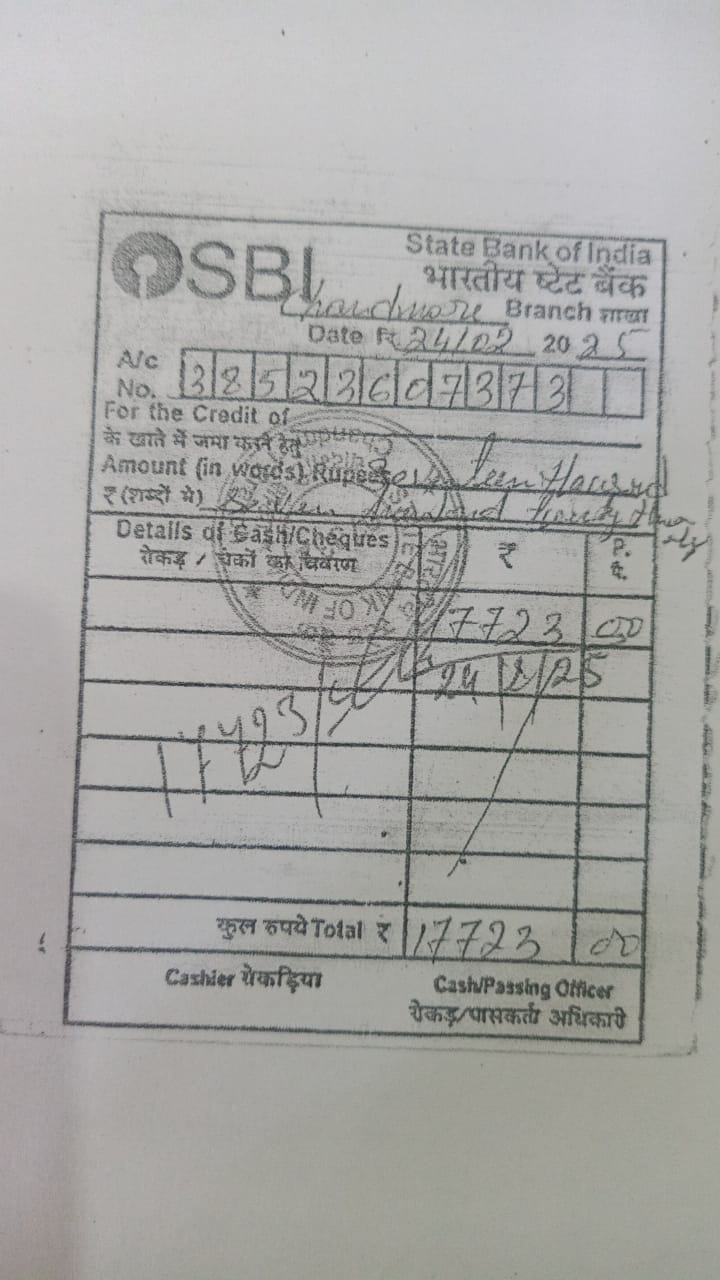 SBI
State Bank of India
भारतीय स्टेट बैंक
Chandmare Branch शाखा
Date दि 24/02 2025
A/c No. 38523607373
For the Credit of
के खाते में जमा करने हेतु
Amount (in words) Rupees Seventeen Thousand
₹ (शब्दों में) Seven hundred twenty three only
Details of Cash/Cheques ₹ P.
रोकड़ / चेकों का विवरण पै.
17723 00
24/2/25
17723
कुल रुपये Total ₹ 17723 00
Cashier रोकड़िया
Cash/Passing Officer
रोकड़/पासकर्ता अधिकारी